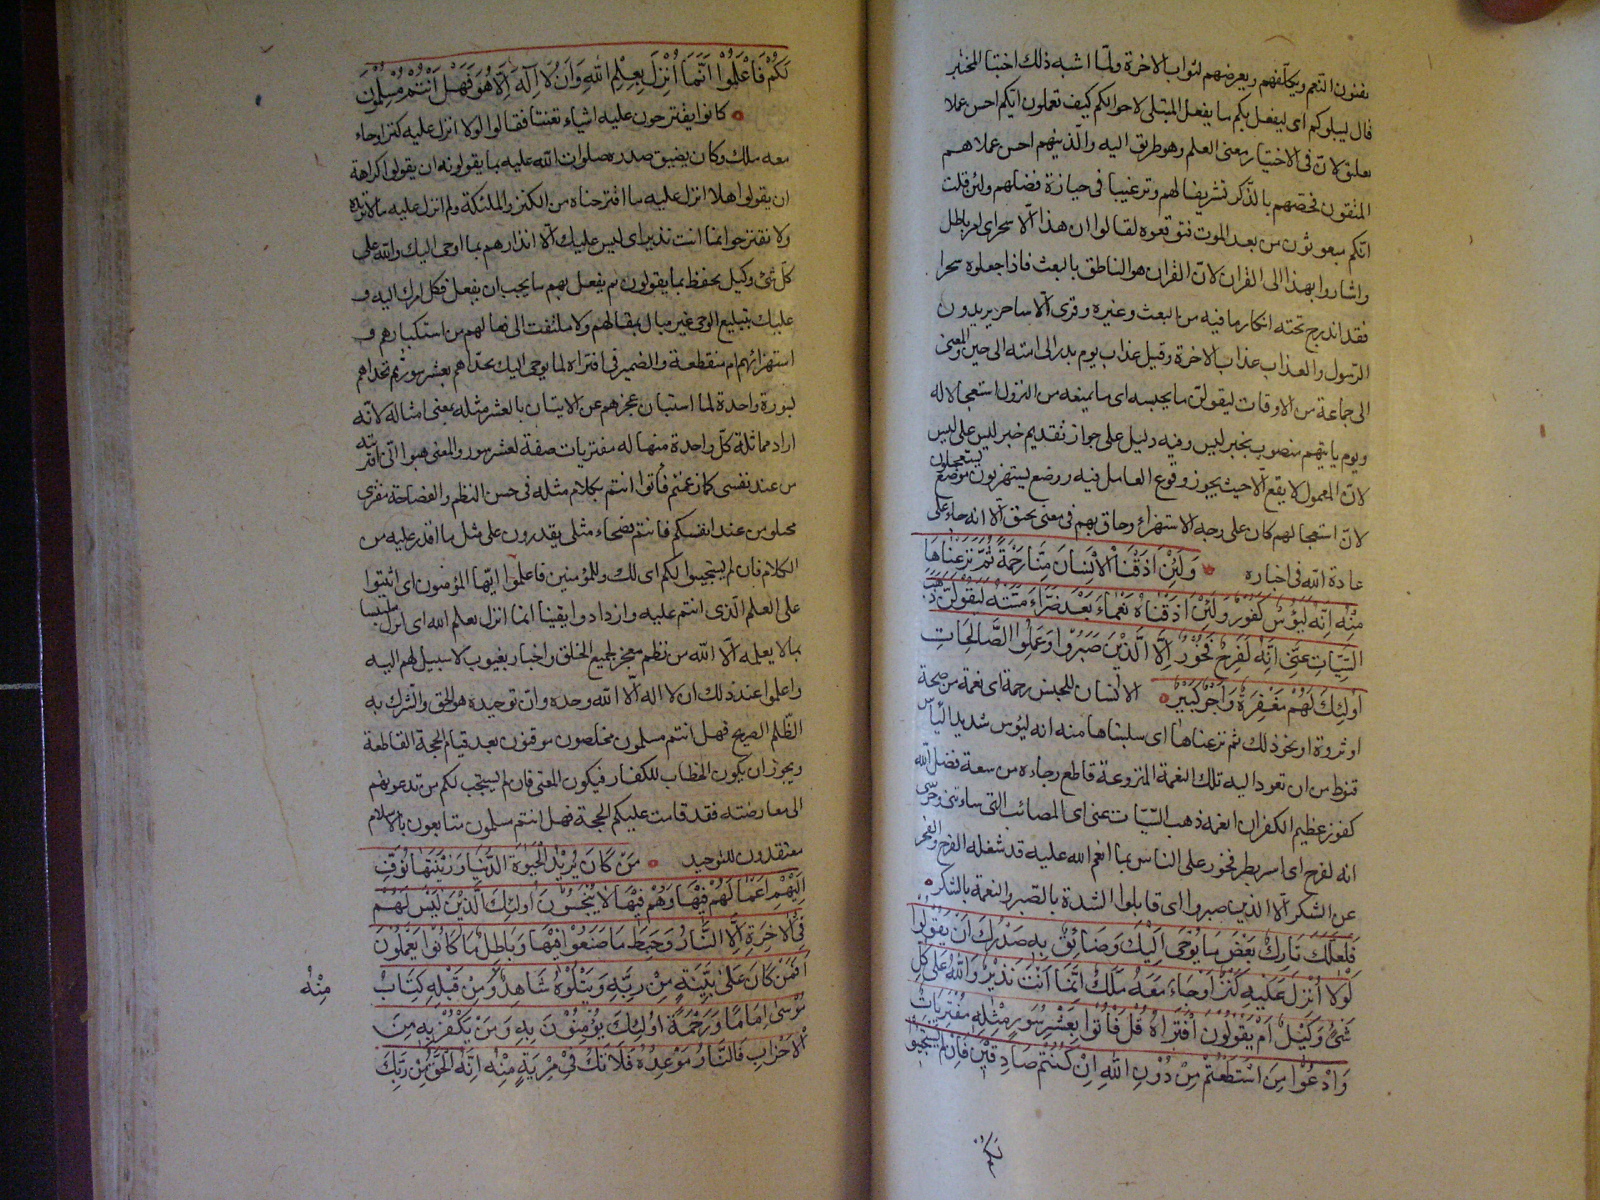 بفنون النعم ويكلفهم ويعرضهم لثواب الاخرة ولما اشبه ذلك اختبار المختبر
قال ليبلوكم اى ليفعل بكم ما يفعل المبتلى لاحوالكم كيف تعملون ايكم احسن عملا
تعليق لان فى الاختبار معنى العلم وهو طريق اليه والذينهم احسن عملا هم
المتقون فخصهم بالذكر تشريفا لهم وترغيبا فى حيازة فضلهم ولئن قلت
انكم مبعوثون من بعد الموت فتوقعوه لقالوا ان هذا الا سحر اى امر باطل
واشاروا بهذا الى القران لان القران هو الناطق بالبعث فاذا جعلوه سحرا
فقد اندرج تحته انكار ما فيه من البعث وغيره وقرى الا ساحر يريدون
الرسول والعذاب عذاب الاخرة وقيل عذاب يوم بدر الى امته الى حين والمعنى
الى جماعة من الاوقات ليقولن ما يحبسه اى ما يمنعه من النزول استعجالا له
ويوم ياتيهم منصوب بخبر ليس وفيه دليل على جواز تقديم خبر ليس على ليس
لان المعمول لا يقع الا حيث يجوز وقوع العامل فيه ووضع يستهزون موضع يستعجلون
لان استعجالهم كان على وجه الاستهزاء وحاق بهم فى معنى يحيق الا انه جاء على
عادة الله فى اخباره وَلَئِنْ اَذَقْنَا الْاِنْسَانَ مِنَّا رَحْمَةً ثُمَّ نَزَعْنَاهَا
مِنْهُ اِنَّهُ لَيَؤُسٌ كَفُورٌ وَلَئِنْ اَذَقْنَاهُ نَعْمَاءَ بَعْدَ ضَرَّاءَ مَسَّتْهُ لَيَقُولَنَّ ذَهَبَ
السَّيِّئَاتُ عَنِّى اِنَّهُ لَفَرِحٌ فَخُورٌ اِلَّا الَّذِيْنَ صَبَرُوا وَعَمِلُوا الصَّالِحَاتِ
اُولَئِكَ لَهُمْ مَغْفِرَةٌ وَاَجْرٌ كَبِيْرٌ الانسان للجنس رحمة اى نعمة من صحة
او ثروة او نحو ذلك ثم نزعناها اى سلبناها منه انه ليؤس شديد الياس
قنوط من ان تعود اليه تلك النعمة المنزوعة قاطع رجاءه من سعة فضل الله
كفور عظيم الكفران لنعمه ذهب السيات عنى اى المصائب التى ساءتنى
انه لفرح اى اشر بطر فخور على الناس بما انعم الله عليه قد شغله الفرح والفخر
عن الشكر الا الذين صبروا اى قابلوا الشدة بالصبر والنعمة بالشكر
فَلَعَلَّكَ تَارِكٌ بَعْضَ مَا يُوْحَى اِلَيْكَ وَضَائِقٌ بِهِ صَدْرُكَ اَنْ يَقُوْلُوا
لَوْلَا اُنْزِلَ عَلَيْهِ كَنْزٌ اَوْ جَاءَ مَعَهُ مَلَكٌ اِنَّمَا اَنْتَ نَذِيْرٌ وَاللّٰهُ عَلَى كُلِّ
شَىْءٍ وَكِيْلٌ اَمْ يَقُوْلُوْنَ افْتَرَاهُ قُلْ فَأْتُوا بِعَشْرِ سُوَرٍ مِثْلِهِ مُفْتَرَيَاتٍ
وَادْعُوْا مَنِ اسْتَطَعْتُمْ مِنْ دُوْنِ اللّٰهِ اِنْ كُنْتُمْ صَادِقِيْنَ فَاِنْ لَمْ يَسْتَجِيْبُوا
لَكُمْ
لَكُمْ فَاعْلَمُوْا اَنَّمَا اُنْزِلَ بِعِلْمِ اللّٰهِ وَاَنْ لَا اِلٰهَ اِلَّا هُوَ فَهَلْ اَنْتُمْ مُسْلِمُوْنَ
كانوا يقترحون عليه اشياء تعنتا فقالوا لولا انزل عليه كنز او جاء
معه ملك وكان يضيق صدره صلوات الله عليه بما يقولونه ان يقولوا كراهة
ان يقولوا هلا انزل عليه ما اقترحناه من الكنز والملئكة ولم انزل عليه ما لا نريده
ولا نقترحه انما انت نذير اى ليس عليك الا انذارهم بما اوحى اليك والله على
كل شئ وكيل يحفظ بما يقولون ثم يفعل بهم ما يجب ان يفعل فكل امرك اليه و
عليك بتبليغ الوحى غير مبال بمقالهم ولا ملتفت الى فعالهم من استكبارهم و
استهزائهم ام منقطعة والضمير فى افتراه لما يوحى اليك تحداهم بعشر سور ثم تحداهم
بسورة واحدة لما استبان عجزهم عن الاتيان بالعشر مثله بمعنى امثاله لانه
اراد مماثلة كل واحدة منها له مفتريات صفة لعشر سور والمعنى هبوا انى افتريته
من عند نفسى كما زعمتم فأتوا انتم بكلام مثله فى حسن النظم والفصاحة مفترى
مختلق من عند انفسكم فانتم فصحاء مثلى يقدرون على مثل ما اقدر عليه من
الكلام فان لم يستجيبوا لكم اى لك وللمؤمنين فاعلموا ايها المؤمنون اى اثبتوا
على العلم الذى انتم عليه وازدادوا يقينا انما انزل بعلم الله اى انزل ملتبسا
بما لا يعلمه الا الله من نظم معجز لجميع الخلق واخبار بغيوب لا سبيل لهم اليه
واعلموا عند ذلك ان لا اله الا الله وحده وان توحيده هو الحق والشرك به
الظلم الصريح فهل انتم مسلمون مخلصون موقنون بعد قيام الحجة القاطعة
ويجوز ان يكون الخطاب للكفار فيكون المعنى فان لم يستجب لكم من تدعونهم
الى معارضته فقد قامت عليكم الحجة فهل انتم مسلمون متابعون بالاسلام
معتقدون للتوحيد مَنْ كَانَ يُرِيْدُ الْحَيٰوةَ الدُّنْيَا وَزِيْنَتَهَا نُوَفِّ
اِلَيْهِمْ اَعْمَالَهُمْ فِيْهَا وَهُمْ فِيْهَا لَا يُبْخَسُوْنَ اُولَئِكَ الَّذِيْنَ لَيْسَ لَهُمْ
فِى الْاٰخِرَةِ اِلَّا النَّارُ وَحَبِطَ مَا صَنَعُوْا فِيْهَا وَبَاطِلٌ مَا كَانُوْا يَعْمَلُوْنَ
اَفَمَنْ كَانَ عَلَى بَيِّنَةٍ مِنْ رَبِّهِ وَيَتْلُوْهُ شَاهِدٌ وَمِنْ قَبْلِهِ كِتَابُ
مِنْهُ
مُوْسَى اِمَامًا وَرَحْمَةً اُولَئِكَ يُؤْمِنُوْنَ بِهِ وَمَنْ يَكْفُرْ بِهِ مِنَ
الْاَحْزَابِ فَالنَّارُ مَوْعِدُهُ فَلَا تَكُ فِىْ مِرْيَةٍ مِنْهُ اِنَّهُ الْحَقُّ مِنْ رَبِّكَ